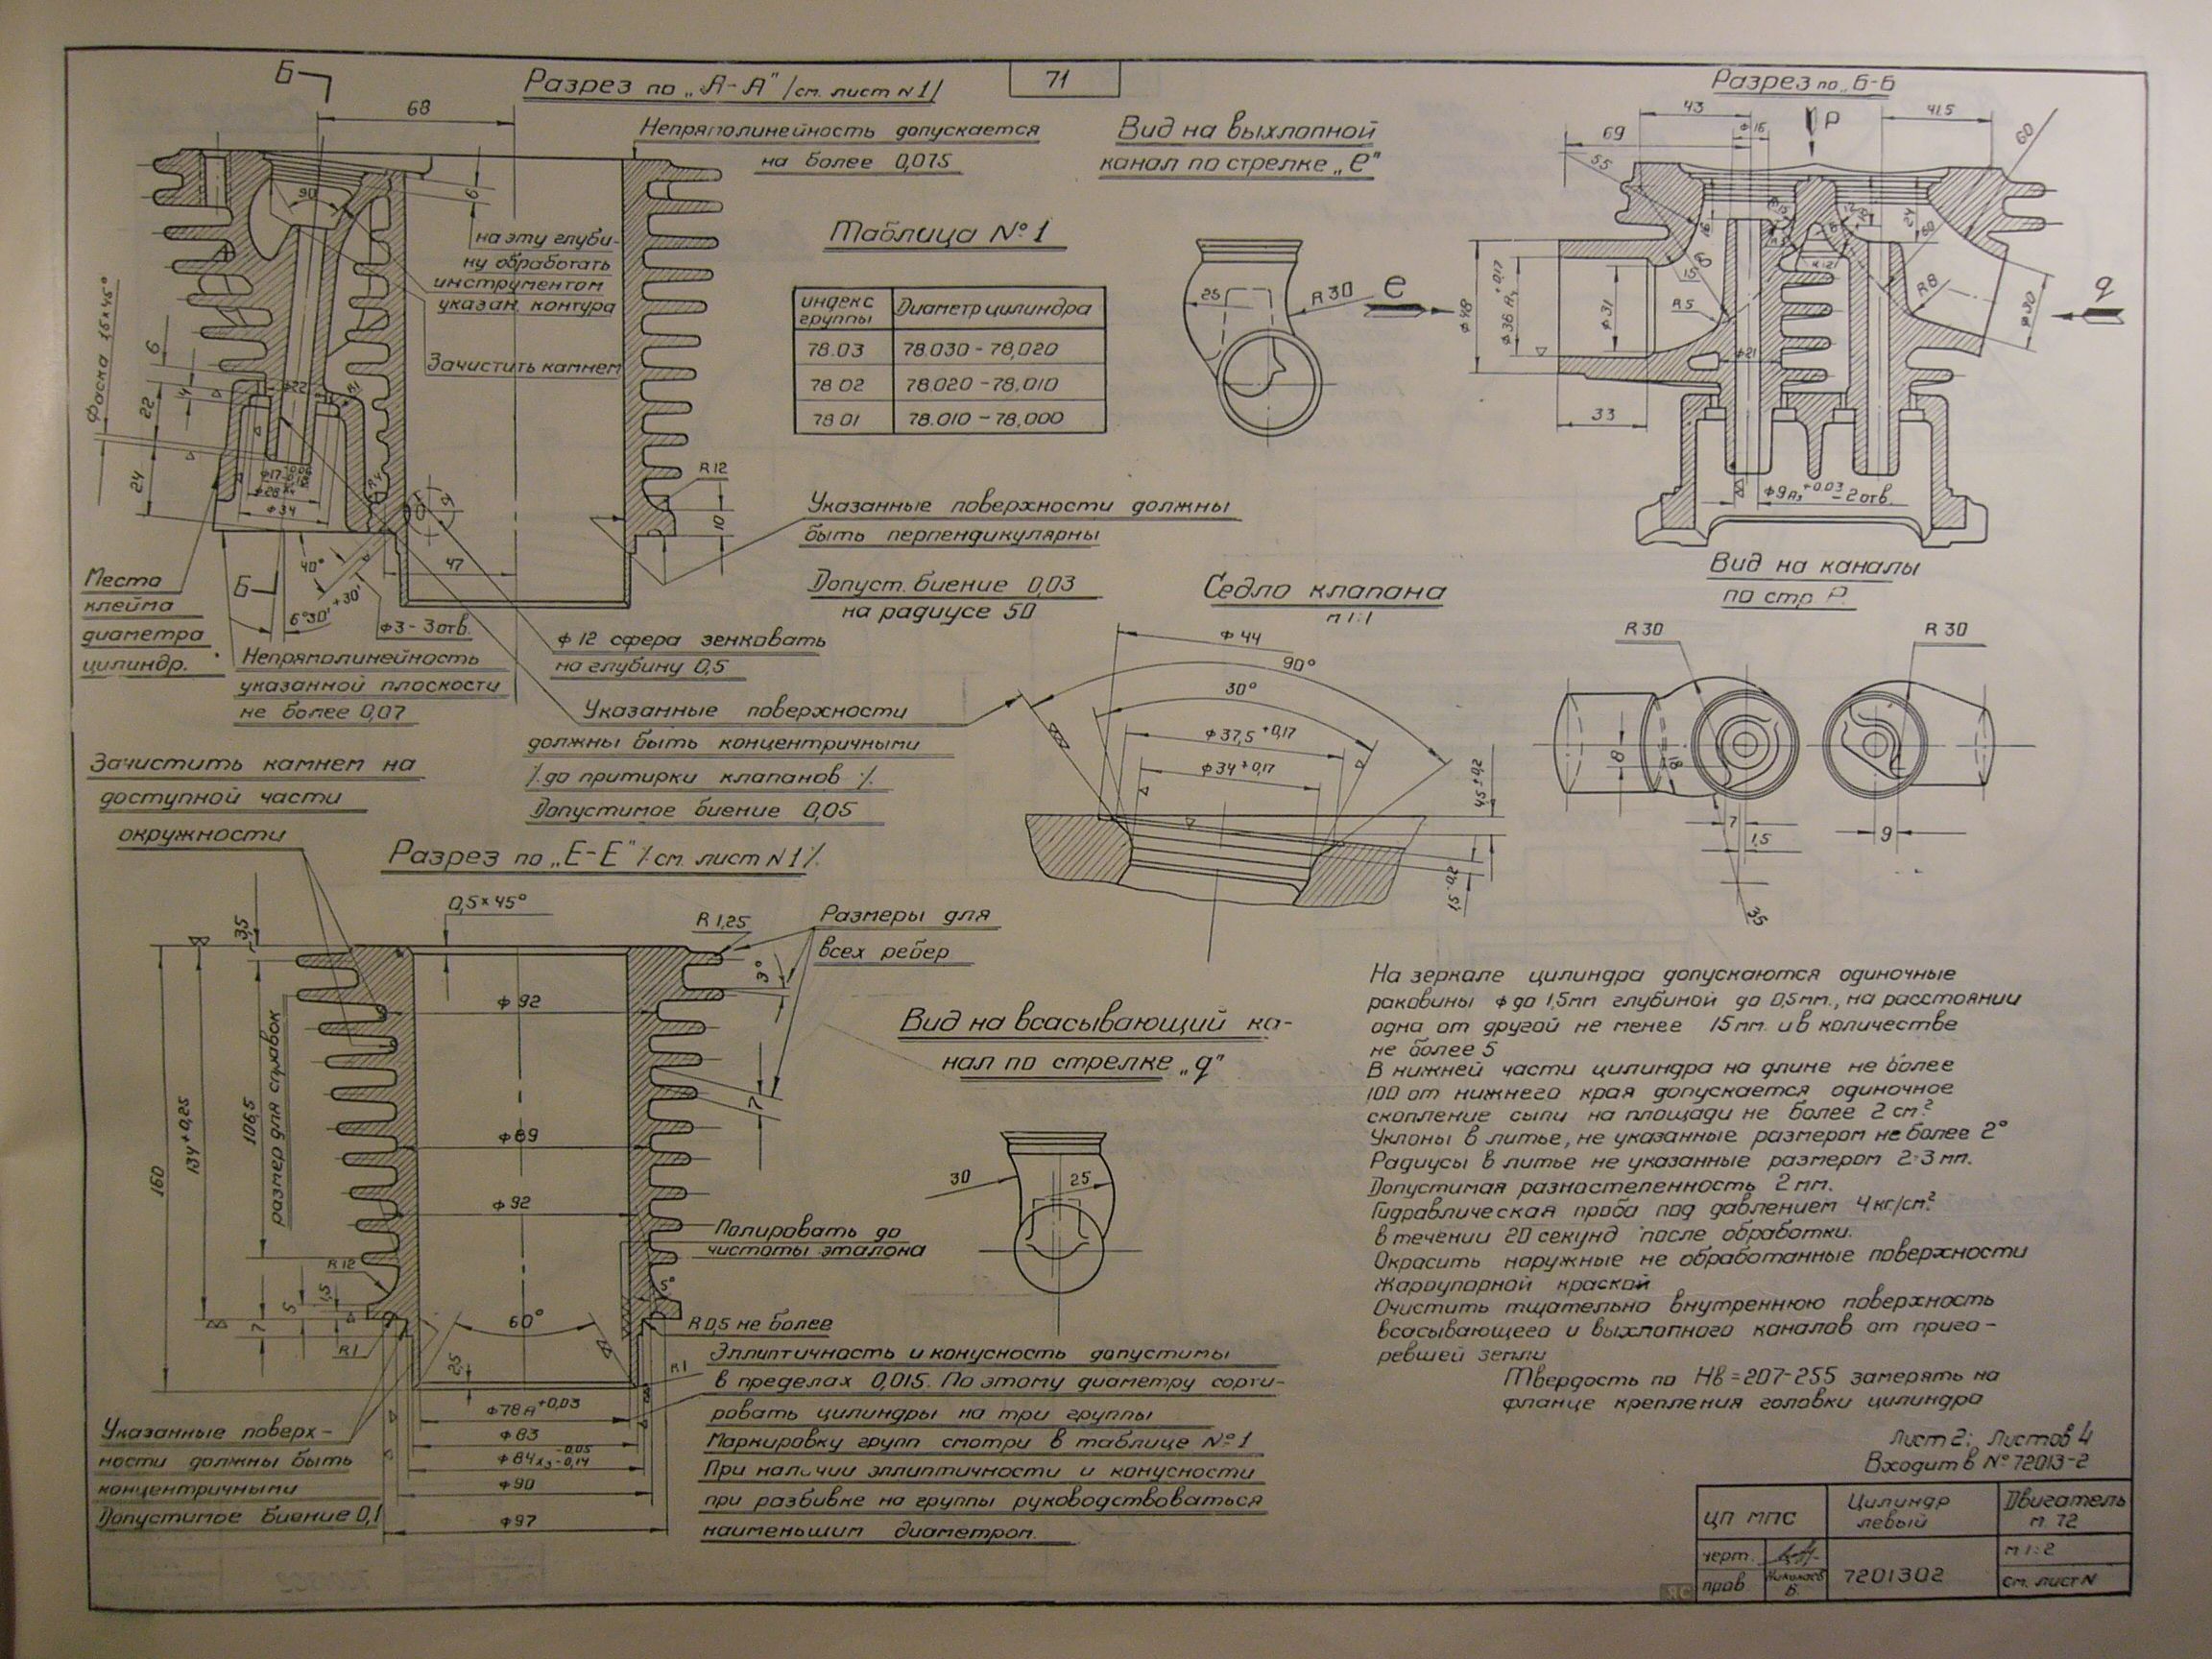 71
Б
Разрез по „А-А" /см. лист N1/
68
Непрямолинейность допускается
на более 0,075
90
6
на эту глуби-
ну обработать
инструментом
указан. контура
Зачистить камнем
Фаска 1,5×45°
6
4
22
24
ф22
ф34
R12
10
47
40°
Б
6°30' +30'
ф3-3отв.
Места
клейма
диаметра
цилиндр.
Непрямолинейность
указанной плоскости
не более 0,07
ф12 сфера зенковать
на глубину 0,5
Указанные поверхности должны
быть перпендикулярны
Допуст. биение 0,03
на радиусе 50
Указанные поверхности
должны быть концентричными
/.до притирки клапанов ⁒.
Допустимое биение 0,05
Таблица №1
индекс группы
Диаметр цилиндра
78.03
78.030-78,020
78 02
78.020-78,010
78 01
78.010-78,000
Вид на выхлопной
канал по стрелке „е"
25
R 30
е
Разрез по „Б-Б
43
ф16
Р
41,5
60
69
55
24
R5
R8
ф48
ф36А₄+0,17
ф31
ф21
ф30
q
33
ф9А₃+0,03-2отв.
Вид на каналы
по стр Р.
R 30
R 30
8
18
7
1,5
9
35
Седло клапана
м 1:1
ф 44
90°
30°
ф 37,5 +0,17
ф34+0,17
45±0,2
1,5-0,2
Зачистить камнем на
доступной части
окружности
Разрез по „Е-Е" ⁒ см. лист N1⁒.
0,5×45°
3,5
R 1,25
3°
Размеры для
всех ребер
ф 92
ф89
ф92
7
160
134+0,25
106,5
размер для справок
R12
5
1,5
7
R1
60°
5°
2,5
R1
R 0,5 не более
Полировать до
чистоты эталона
ф78А+0,03
ф83
ф84х₃-0,05-0,14
ф90
ф97
Указанные поверх-
ности должны быть
концентричными
Допустимое биение 0,1
Эллиптичность и конусность допустимы
в пределах 0,015. По этому диаметру сорти-
ровать цилиндры на три группы
Маркировку групп смотри в таблице №1
При наличии эллиптичности и конусности
при разбивке на группы руководствоваться
наименьшим диаметром.
Вид на всасывающий ка-
нал по стрелке „q"
30
25
На зеркале цилиндра допускаются одиночные
раковины ф до 1,5мм глубиной до 0,5мм., на расстоянии
одна от другой не менее 15мм. и в количестве
не более 5
В нижней части цилиндра на длине не более
100 от нижнего края допускается одиночное
скопление сыпи на площади не более 2 см.²
Уклоны в литье, не указанные размером не более 2°
Радиусы в литье не указанные размером 2-3 мм.
Допустимая разностеленность 2мм.
Гидравлическая проба под давлением 4кг/см.²
в течении 20 секунд после обработки.
Окрасить наружные не обработанные поверхности
Жароупорной краской
Очистить тщательно внутреннюю поверхность
всасывающего и выхлопного каналов от приго-
ревшей земли
Твердость по Нв=207-255 замерять на
фланце крепления головки цилиндра
Лист 2; Листов 4
Входит в №72013-2
ЦП МПС
Цилиндр левый
Двигатель м. 72
черт.
м 1:2
пров.
Николаев В.
7201302
см. лист N
ЯС